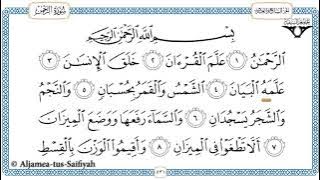 الجزء السابع والعشرون سُورَةُ الرَّحْمٰن
بِسْمِ اللَّهِ الرَّحْمَٰنِ الرَّحِيمِ
الرَّحْمَٰنُ ١ عَلَّمَ الْقُرْءَانَ ٢ خَلَقَ الْإِنسَٰنَ ٣
عَلَّمَهُ الْبَيَانَ ٤ الشَّمْسُ وَالْقَمَرُ بِحُسْبَانٍ ٥ وَالنَّجْمُ
وَالشَّجَرُ يَسْجُدَانِ ٦ وَالسَّمَاءَ رَفَعَهَا وَوَضَعَ الْمِيزَانَ
٧ أَلَّا تَطْغَوْا فِي الْمِيزَانِ ٨ وَأَقِيمُوا الْوَزْنَ بِالْقِسْطِ
© Aljamea-tus-Saifiyah
٥٣١